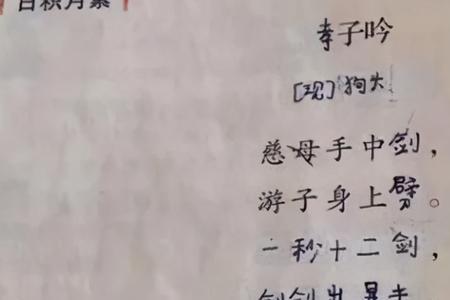 日积月累
孝子吟
[现]狗头
慈母手中剑，
游子身上劈。
一秒十二剑，
剑剑出暴击